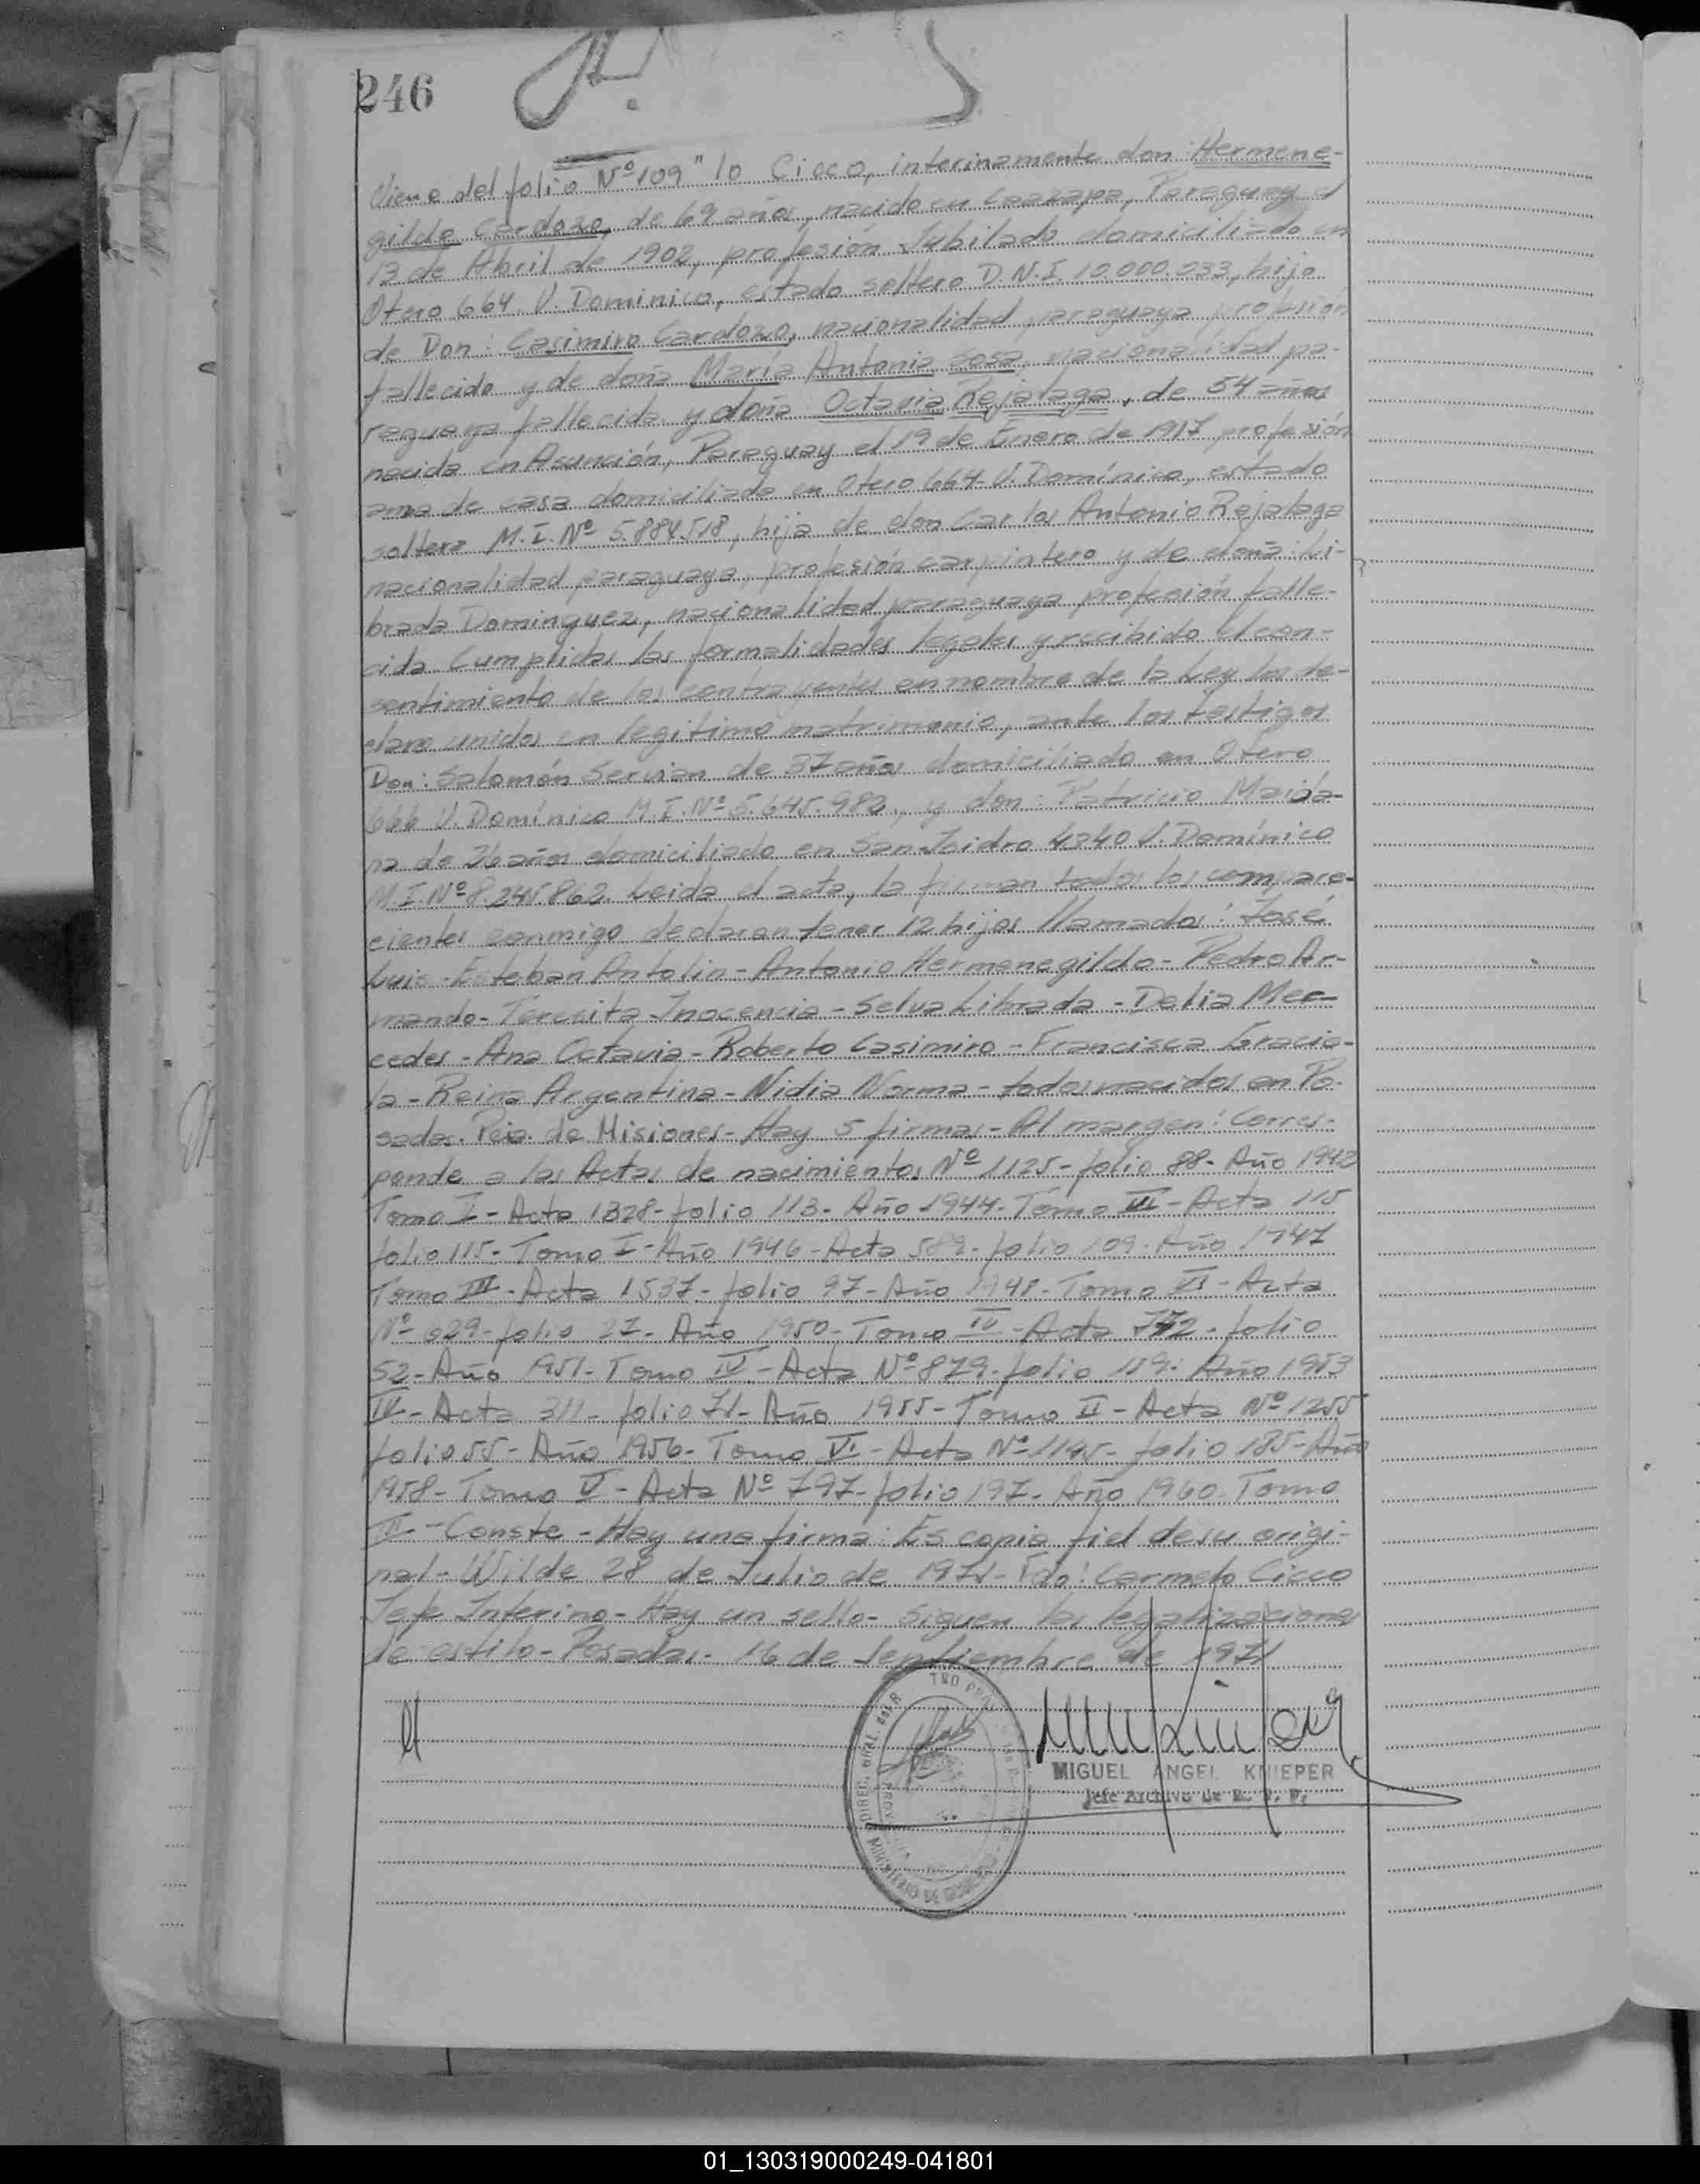 246
Viene del folio Nº 109" lo Cicco, interinamente don: Hermene-
gildo Cardozo, de 69 años, nacido en Caazapa, Paraguay el
13 de Abril de 1902, profesión Jubilado domiciliado en
Otero 664. V. Dominico, estado soltero D.N.I. 10.000.033, hijo
de Don: Casimiro Cardozo, nacionalidad paraguaya profesión
fallecido y de doña María Antonia Sosa, nacionalidad pa-
raguaya fallecida y doña: Octavia Rejalaga, de 54 años
nacida en Asunción, Paraguay el 19 de Enero de 1917 profesión
ama de casa domiciliada en Otero 664-V. Domínico, estado
soltera M.I. Nº 5.884.518, hija de don Carlos Antonio Rejalaga
nacionalidad paraguaya, profesión carpintero y de doña: Li-
brada Dominguez, nacionalidad paraguaya profesión falle-
cida Cumplidas las formalidades legales y recibido el con-
sentimiento de los contrayentes en nombre de la Ley los de-
claro unidos en legitimo matrimonio, ante los testigos
Don: Salomón Servian de 37 años domiciliado en Otero
666 V. Domínico M.I. Nº 5.645.982, y don: Patricio Maida-
na de 36 años domiciliado en San Isidro 4340 V. Domínico
M.I. Nº 8.245.862. Leida el acta, la firman todos los compare-
cientes conmigo declaran tener 12 hijos llamados: José
Luis - Esteban Antolin - Antonio Hermenegildo - Pedro Ar-
mando - Teresita Inocencia - Selva Librada - Delia Mer-
cedes - Ana Octavia - Roberto Casimiro - Francisca Gracie-
la - Reina Argentina - Nidia Norma - todos nacidos en Po-
sadas. Pcia. de Misiones - Hay 5 firmas - Al margen: Corres-
ponde a las Actas de nacimientos Nº 1125 - folio 88 - Año 1942
Tomo II - Acta 1328 - folio 113 - Año 1944 - Tomo III - Acta 115
folio 115 - Tomo I - Año 1946 - Acta folio 109 - Año 1947
Tomo III - Acta 1537 - folio 97 - Año 1948 - Tomo VI - Acta
Nº 629 - folio 27 - Año 1950 - Tomo IV - Acta 772 - folio
52 - Año 1951 - Tomo IV - Acta Nº 879 - folio 159 - Año 1953
IV - Acta 311 - folio 71 - Año 1955 - Tomo II - Acta Nº 1255
folio 55 - Año 1956 - Tomo VI - Acta Nº 1145 - folio 185 - Año
1958 - Tomo V - Acta Nº 797 - folio 197 - Año 1960. Tomo
IV - Conste - Hay una firma: Es copia fiel de su origi-
nal - Wilde 28 de Julio de 1971 - Fdo: Carmelo Cicco
Jefe Interino - Hay un sello - Siguen las legalizaciones
de estilo - Posadas - 16 de Septiembre de 1971
MIGUEL ANGEL KNIEPER
Jefe Archivo de R. P. P.
DIREC. GRAL. DEL R
MINISTERIO DE GOBIERNO
01_130319000249-041801